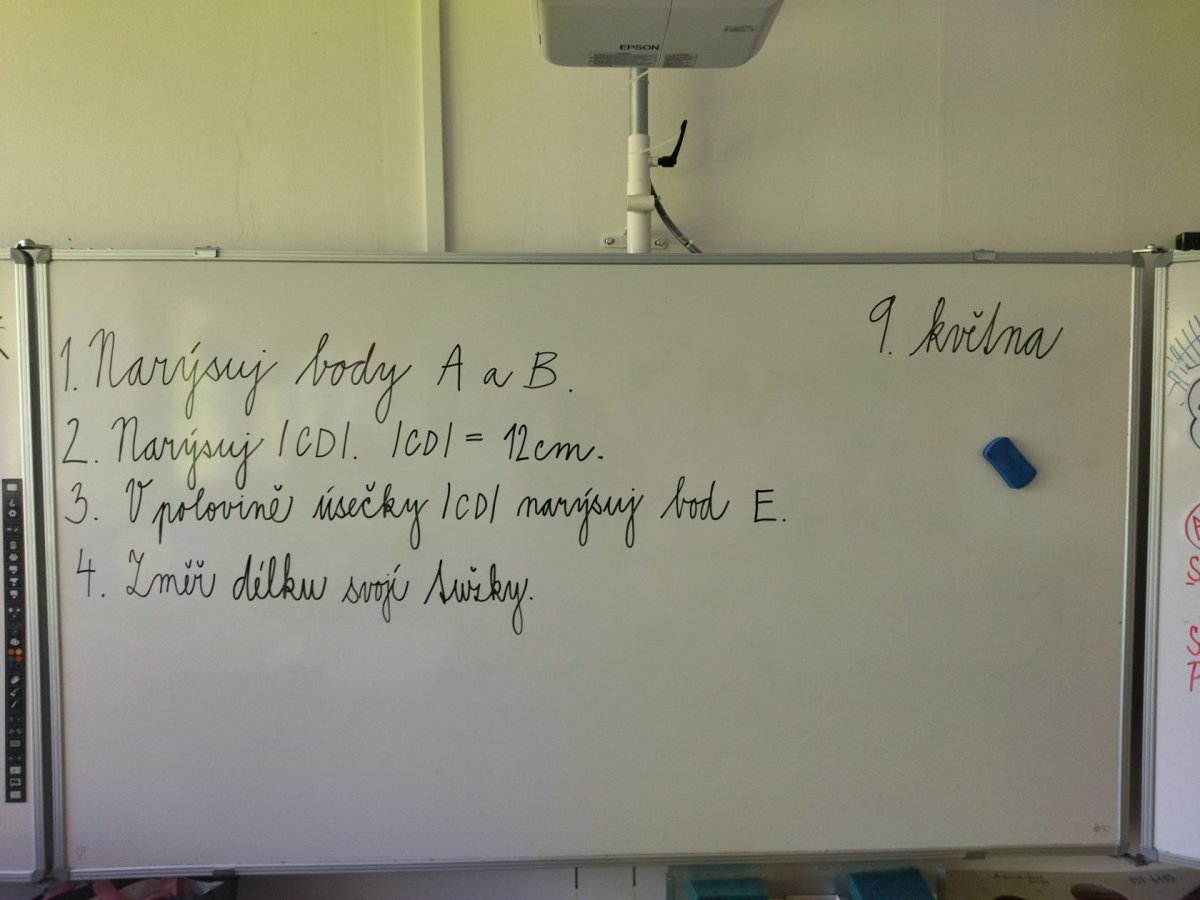 EPSON
9. května
1. Narýsuj body A a B.
2. Narýsuj |CD|. |CD| = 12cm.
3. V polovině úsečky |CD| narýsuj bod E.
4. Změř délku svojí tužky.